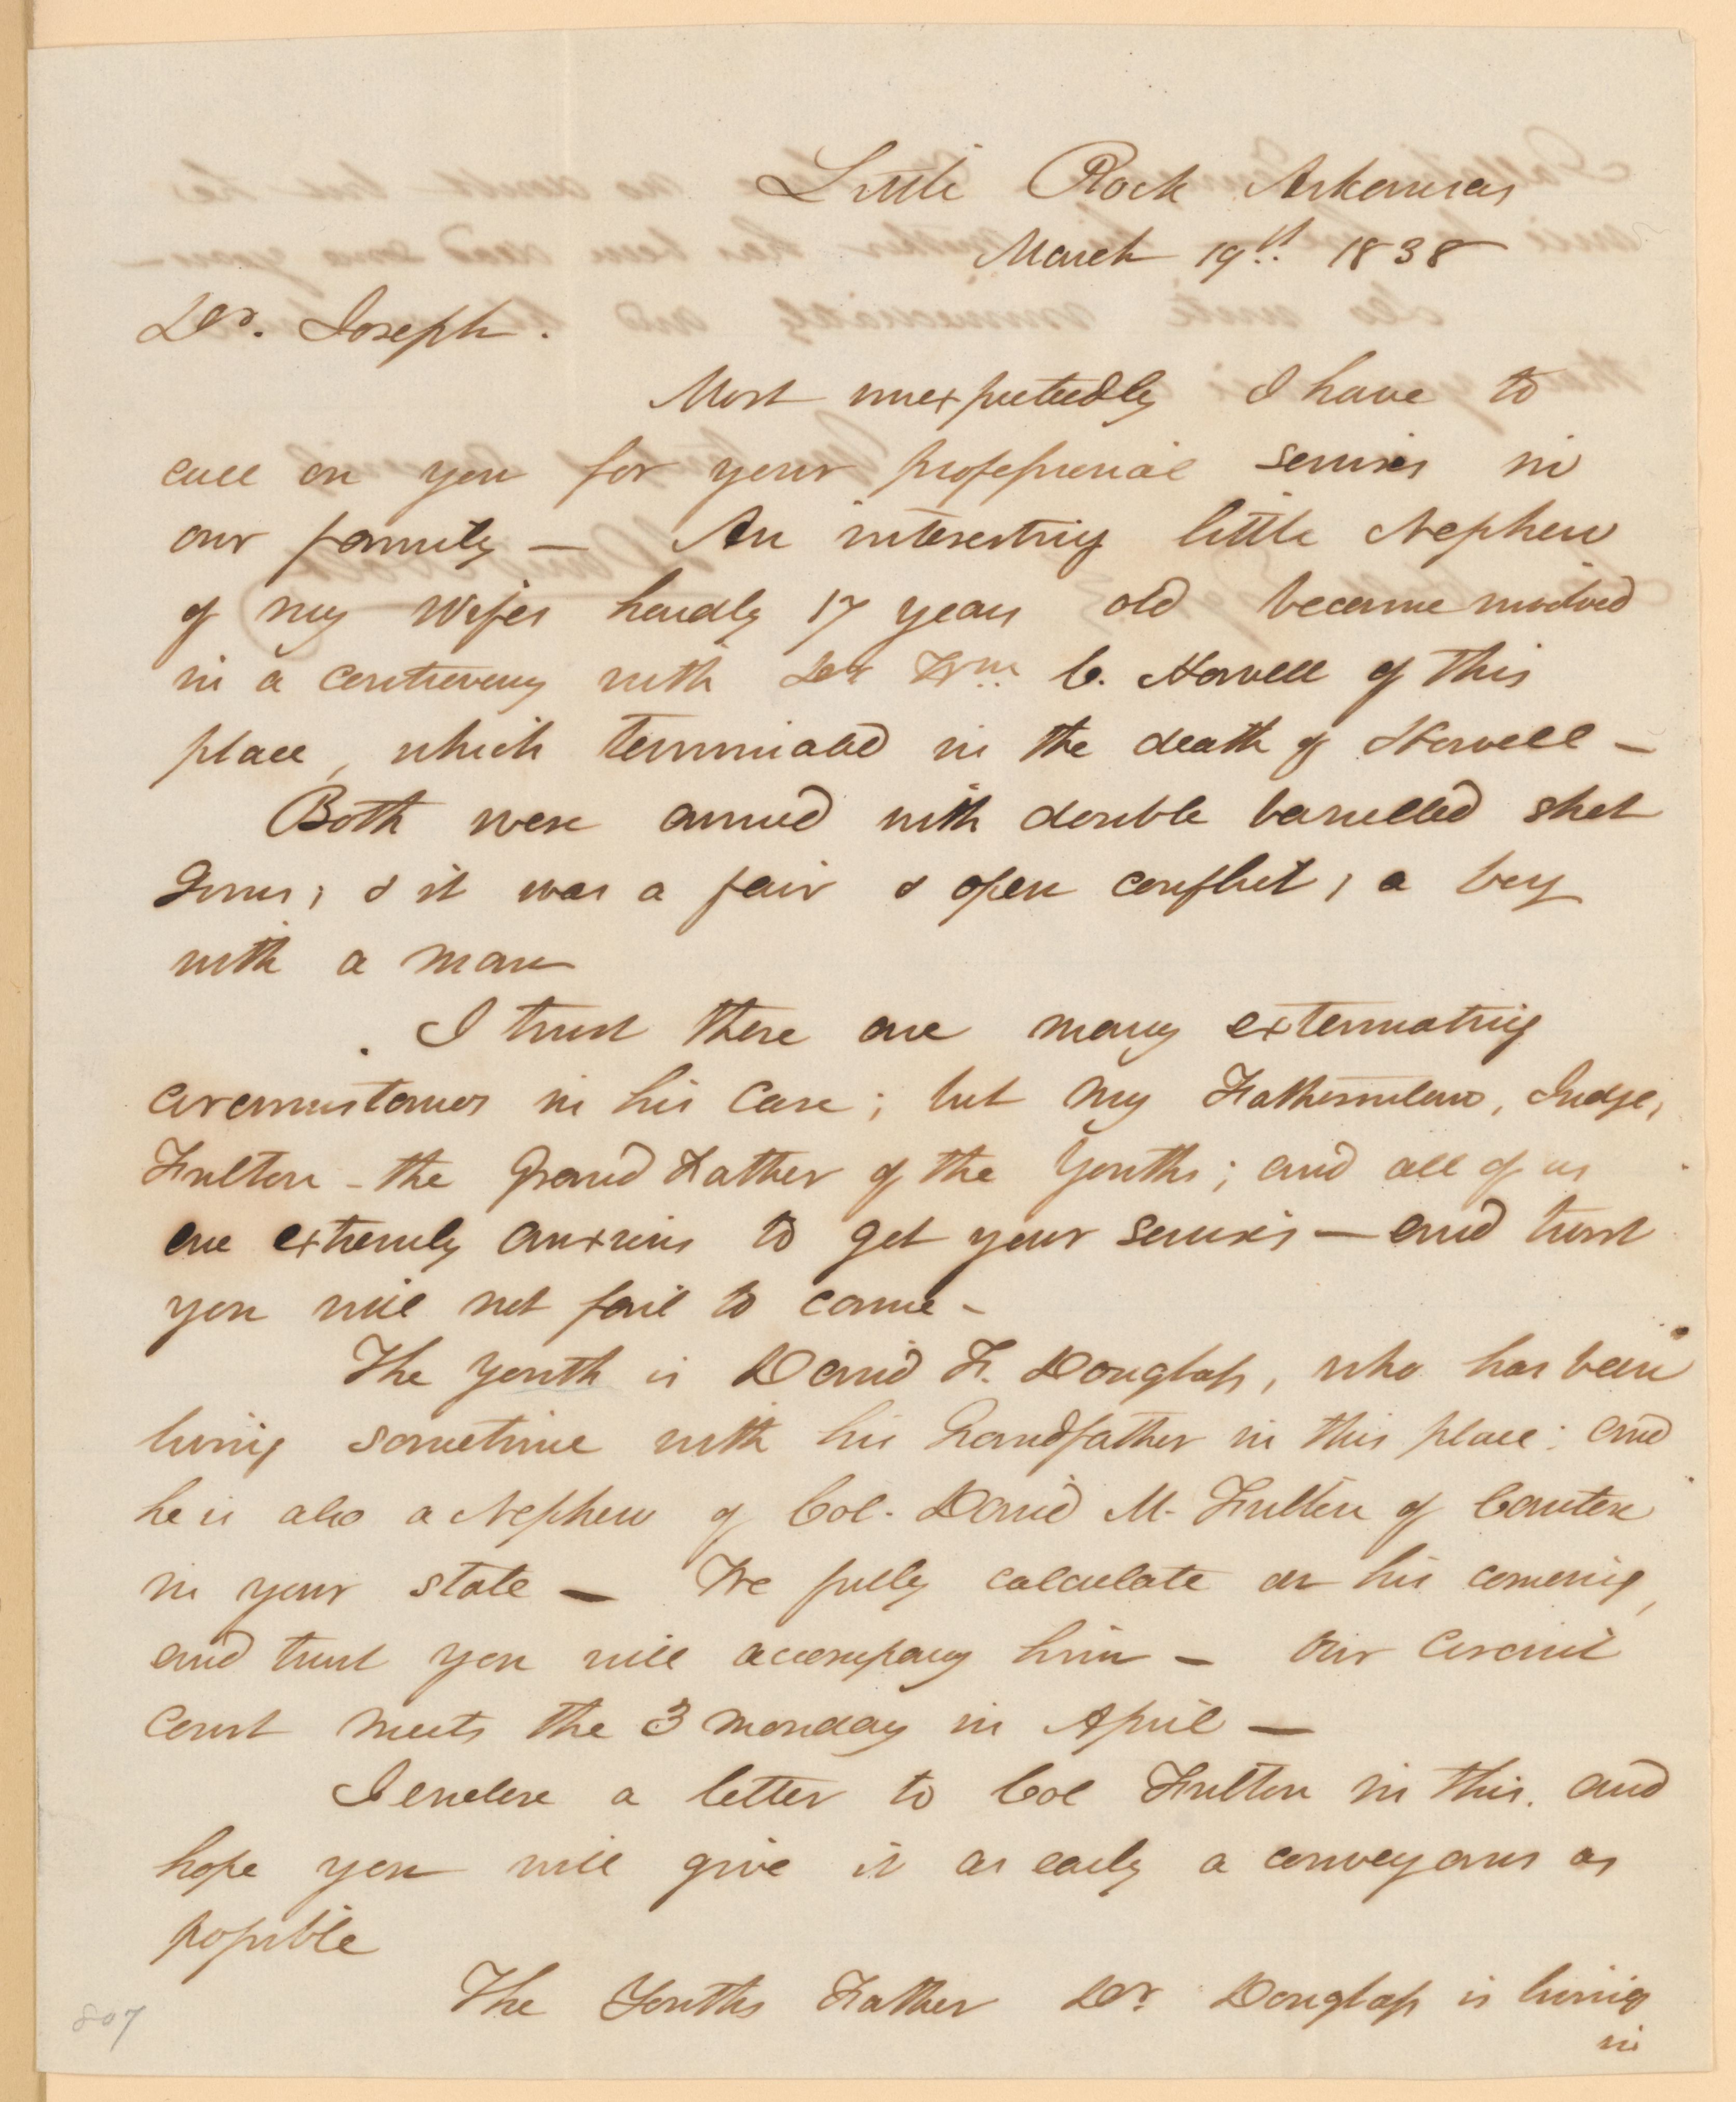 Little Rock Arkansas
March 19th 1838
Dr. Joseph.
Most unexpectedly I have to
call on you for your professional services in
our family — An interesting little Nephew
of my Wifes hardly 17 years old became involved
in a controversy with Dr Wm. C. Howell of this
place, which terminated in the death of Howell —
Both were armed with double barrelled shot
Guns; & it was a fair & open conflict, a boy
with a man
I trust there are many extenuating
circumstances in his case; but my Fatherinlaw, Judge,
Fulton - the Grand Father of the Youths; and all of us
are extremely anxious to get your services — and trust
you will not fail to come -
The youth is David F. Douglass, who has been
living sometime with his Grandfather in this place; and
he is also a Nephew of Col. David M. Fulton of Canton
in your state — We fully calculate on his comeing,
and trust you will accompany him — Our Circuit
Court meets the 3 monday in April —
I enclose a letter to Col Fulton in this. and
hope you will give it as early a conveyance as
possible
The Youths Father Dr. Douglass is living
in
807